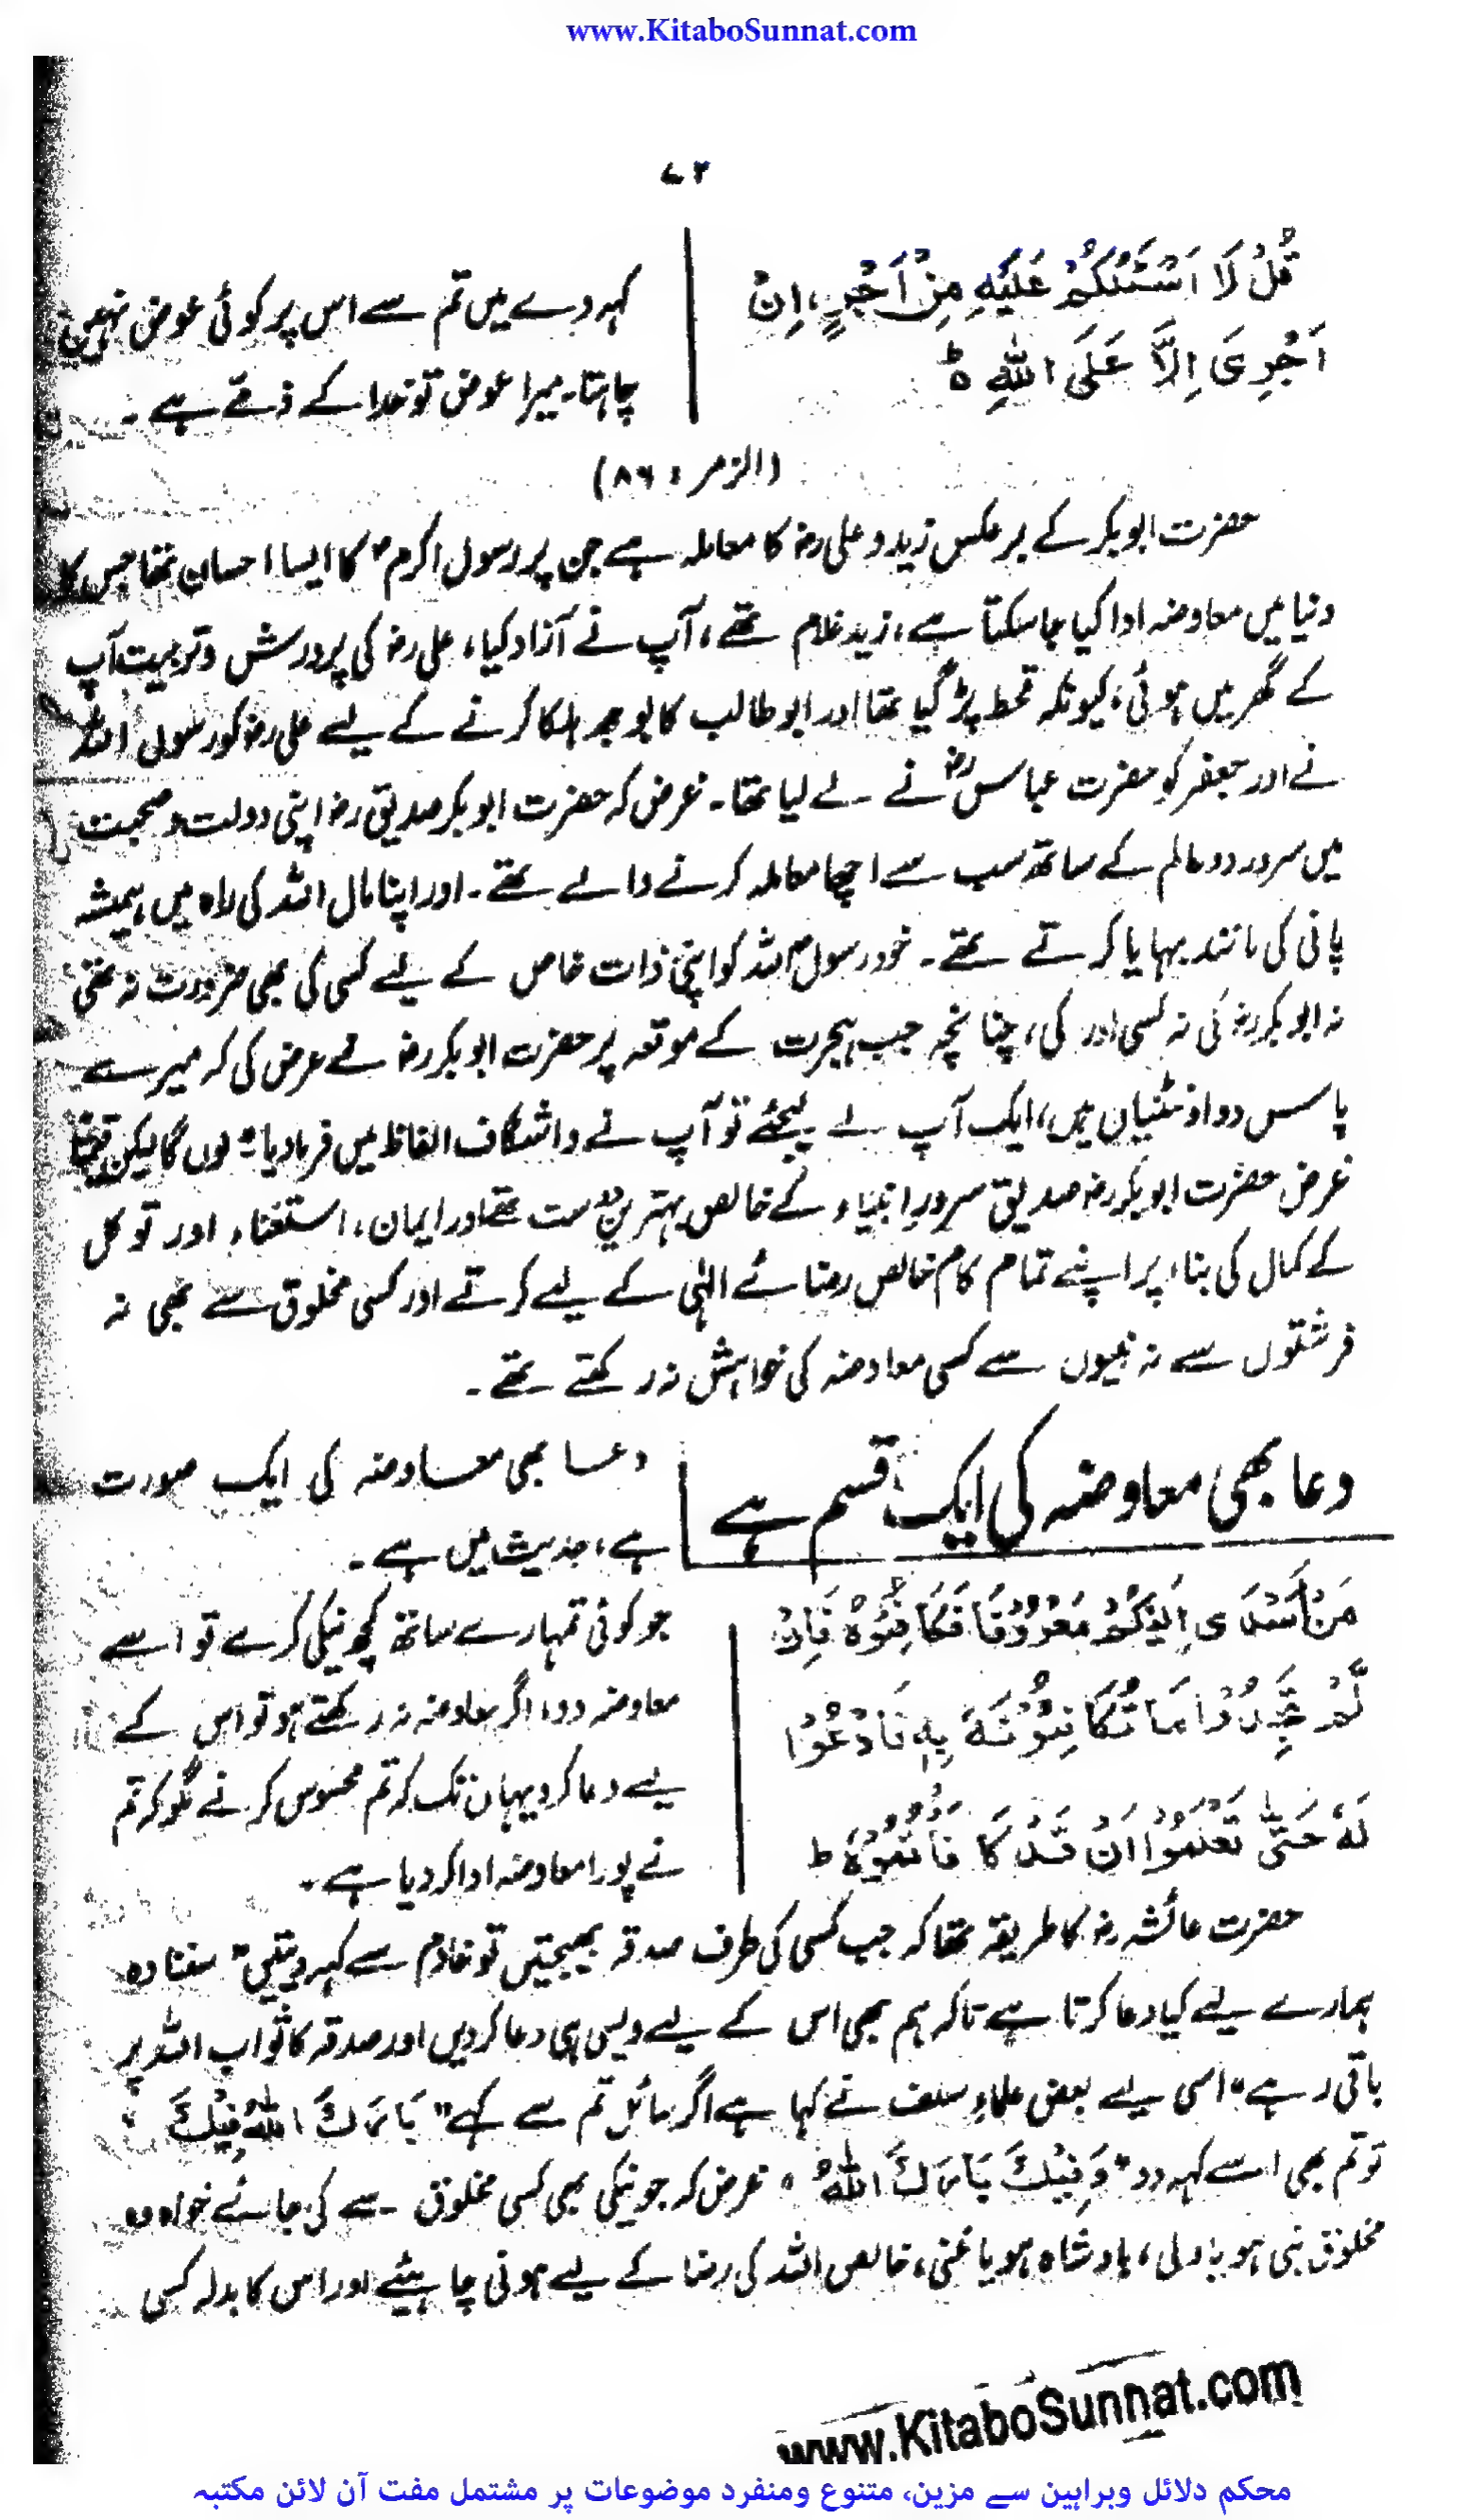 www.KitaboSunnat.com
۷۲
قُلْ لَا اَسْئَلُكُمْ عَلَيْهِ مِنْ اَجْرٍ، اِنْ
اَجْرِىَ اِلَّا عَلَى اللّٰهِ ط
کہہ دے میں تم سے اس پر کوئی عوض نہیں
چاہتا۔ میرا عوض تو خدا کے ذمے ہے۔
(الزمر: ۸۶)
حضرت ابوبکر کے برعکس زید و علی رض کا معاملہ ہے جن پر رسول اکرم ؐ کا ایسا احسان تھا جس کا
دنیا میں معاوضہ ادا کیا جا سکتا ہے، زید غلام تھے، آپ نے آزاد کیا، علی رض کی پرورش و تربیت آپ
کے گھر میں ہوئی، کیونکہ قحط پڑ گیا تھا اور ابو طالب کا بوجھ ہلکا کرنے کے لیے علی رض کو رسول اللہ
نے اور جعفر کو حضرت عباس رض نے لے لیا تھا۔ غرض کہ حضرت ابو بکر صدیق رض اپنی دولت و صحبت
میں سرور دو عالم کے ساتھ سب سے اچھا معاملہ کرنے والے تھے۔ اور اپنا مال اللہ کی راہ میں ہمیشہ
پانی کی مانند بہایا کرتے تھے۔ خود رسول اللہ کو اپنی ذات خاص کے لیے کسی کی بھی ضرورت نہ تھی
نہ ابو بکر رض کی نہ کسی اور کی، چنانچہ جب ہجرت کے موقعہ پر حضرت ابو بکر رض نے عرض کی کہ میرے
پاس دو اونٹنیاں ہیں، ایک آپ لے لیجئے تو آپ نے واشگاف الفاظ میں فرما دیا "لوں گا لیکن قیمتًا
غرض حضرت ابو بکر رض صدیق سرورِ انبیاء کے خالص بہترین دوست تھے اور ایمان، استغناء اور توکل
کے کمال کی بناء پر اپنے تمام کام خالص رضائے الٰہی کے لیے کرتے اور کسی مخلوق سے بھی نہ
فرشتوں سے نہ نبیوں سے کسی معاوضہ کی خواہش نہ رکھتے تھے۔
دعا بھی معاوضہ کی ایک قسم ہے
دعا بھی معاوضہ کی ایک صورت
ہے، حدیث میں ہے۔
مَنْ اَسْدَى اِلَيْكُمْ مَعْرُوْفًا فَكَافِئُوْهُ فَاِنْ
لَّمْ تَجِدُوْا مَا تُكَافِئُوْنَهٗ بِهٖ فَادْعُوْا
لَهٗ حَتّٰى تَعْلَمُوْا اَنْ قَدْ كَافَأْتُمُوْهُ ط
جو کوئی تمہارے ساتھ کچھ نیکی کرے تو اسے
معاوضہ دو، اگر معاوضہ نہ رکھتے ہو تو اس کے
لیے دعا کرو یہاں تک کہ تم محسوس کرنے لگو کہ تم
نے پورا معاوضہ ادا کر دیا ہے۔
حضرت عائشہ رض کا طریقہ تھا کہ جب کسی کی طرف صدقہ بھیجتیں تو خادم سے کہہ دیتیں" سننا وہ
ہمارے لیے کیا دعا کرتا ہے تاکہ ہم بھی اس کے لیے ویسی ہی دعا کر دیں اور صدقہ کا ثواب اللہ پر
باقی رہے" اسی لیے بعض علماءِ سلف نے کہا ہے اگر سائل تم سے کہے "بَارَكَ اللّٰهُ فِيْكَ"
تو تم بھی اسے کہہ دو "وَفِيْكَ بَارَكَ اللّٰهُ" غرض کہ جو نیکی بھی کسی مخلوق سے کی جائے خواہ وہ
مخلوق نبی ہو یا ولی، بادشاہ ہو یا غنی، خالص اللہ کی رضا کے لیے ہونی چاہئیے اور اس کا بدلہ کسی
www.KitaboSunnat.com
محکم دلائل وبراہین سے مزین، متنوع ومنفرد موضوعات پر مشتمل مفت آن لائن مکتبہ